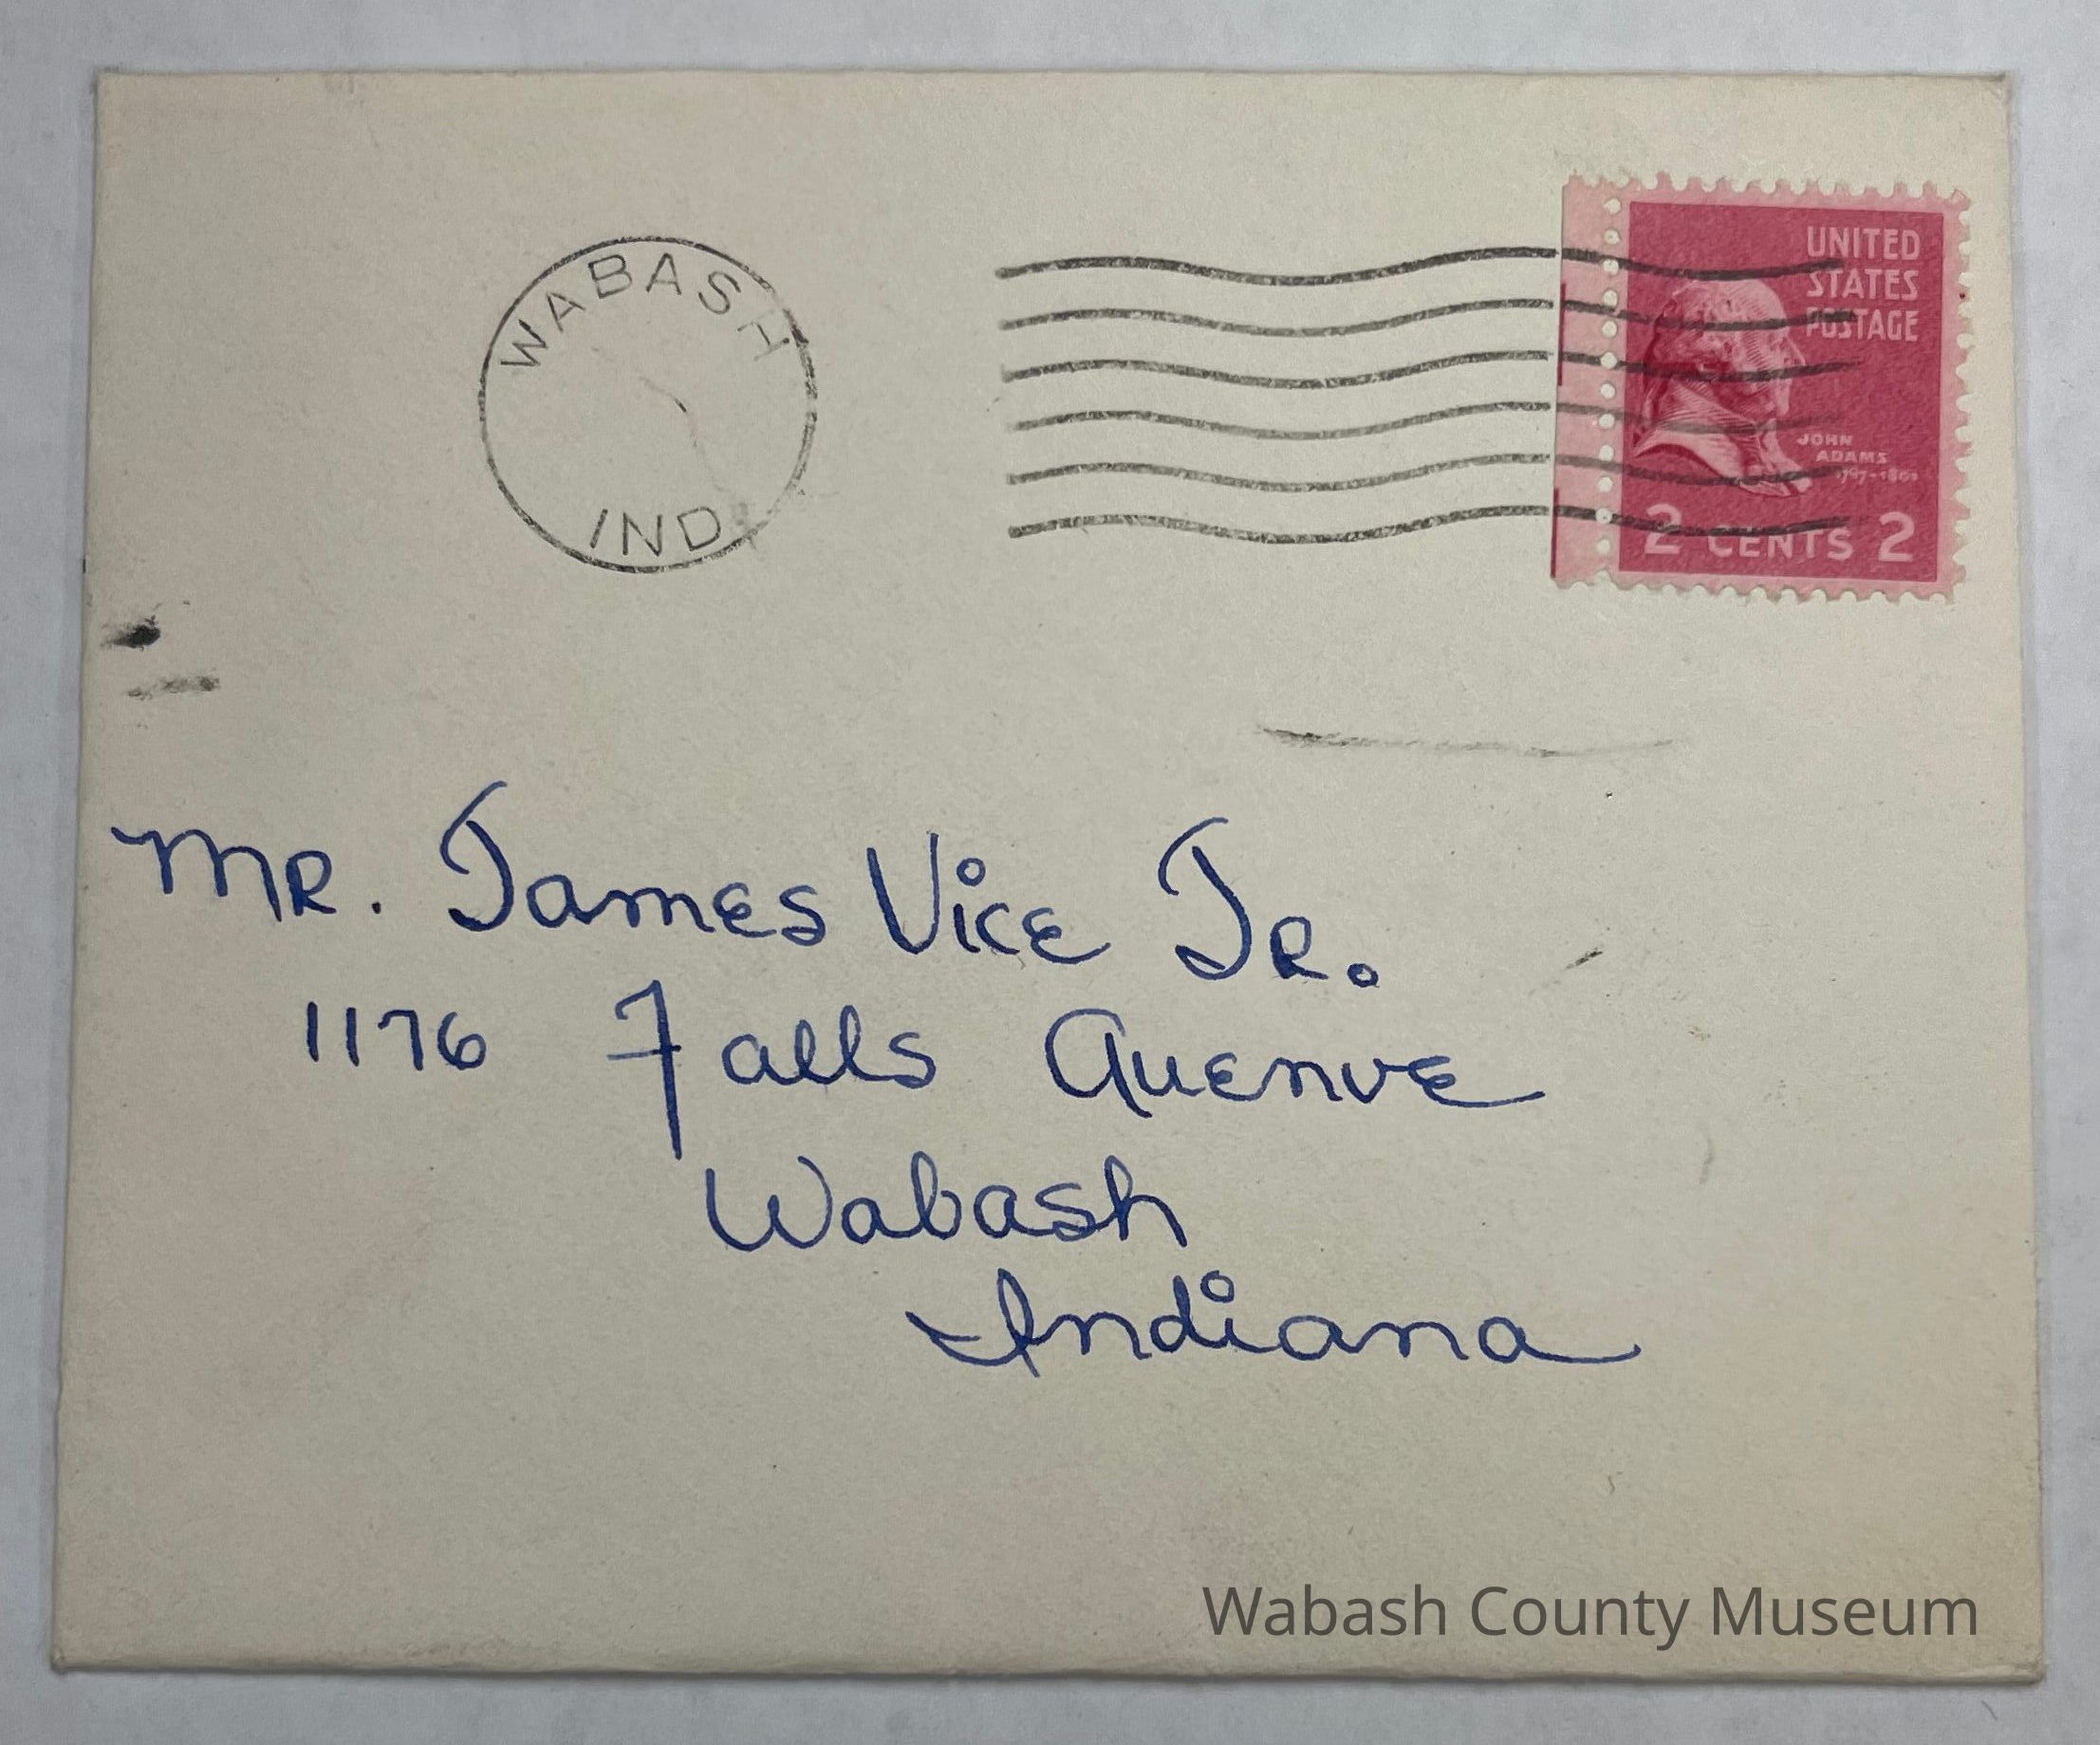 WABASH
IND
UNITED
STATES
POSTAGE
JOHN
ADAMS
1797-1801
2 CENTS 2
MR. James Vice JR.
1176 Falls Avenue
Wabash
Indiana
Wabash County Museum